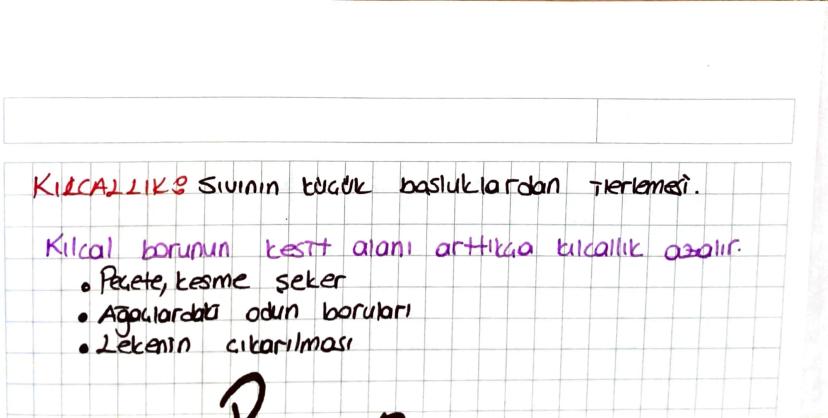 KILCALLIK: Sıvının küçük boşluklardan ilerlemesi.
Kılcal borunun kesit alanı arttıkça kılcallık azalır.
• Peçete, kesme şeker
• Ağaçlardaki odun boruları
• Lekenin çıkarılması